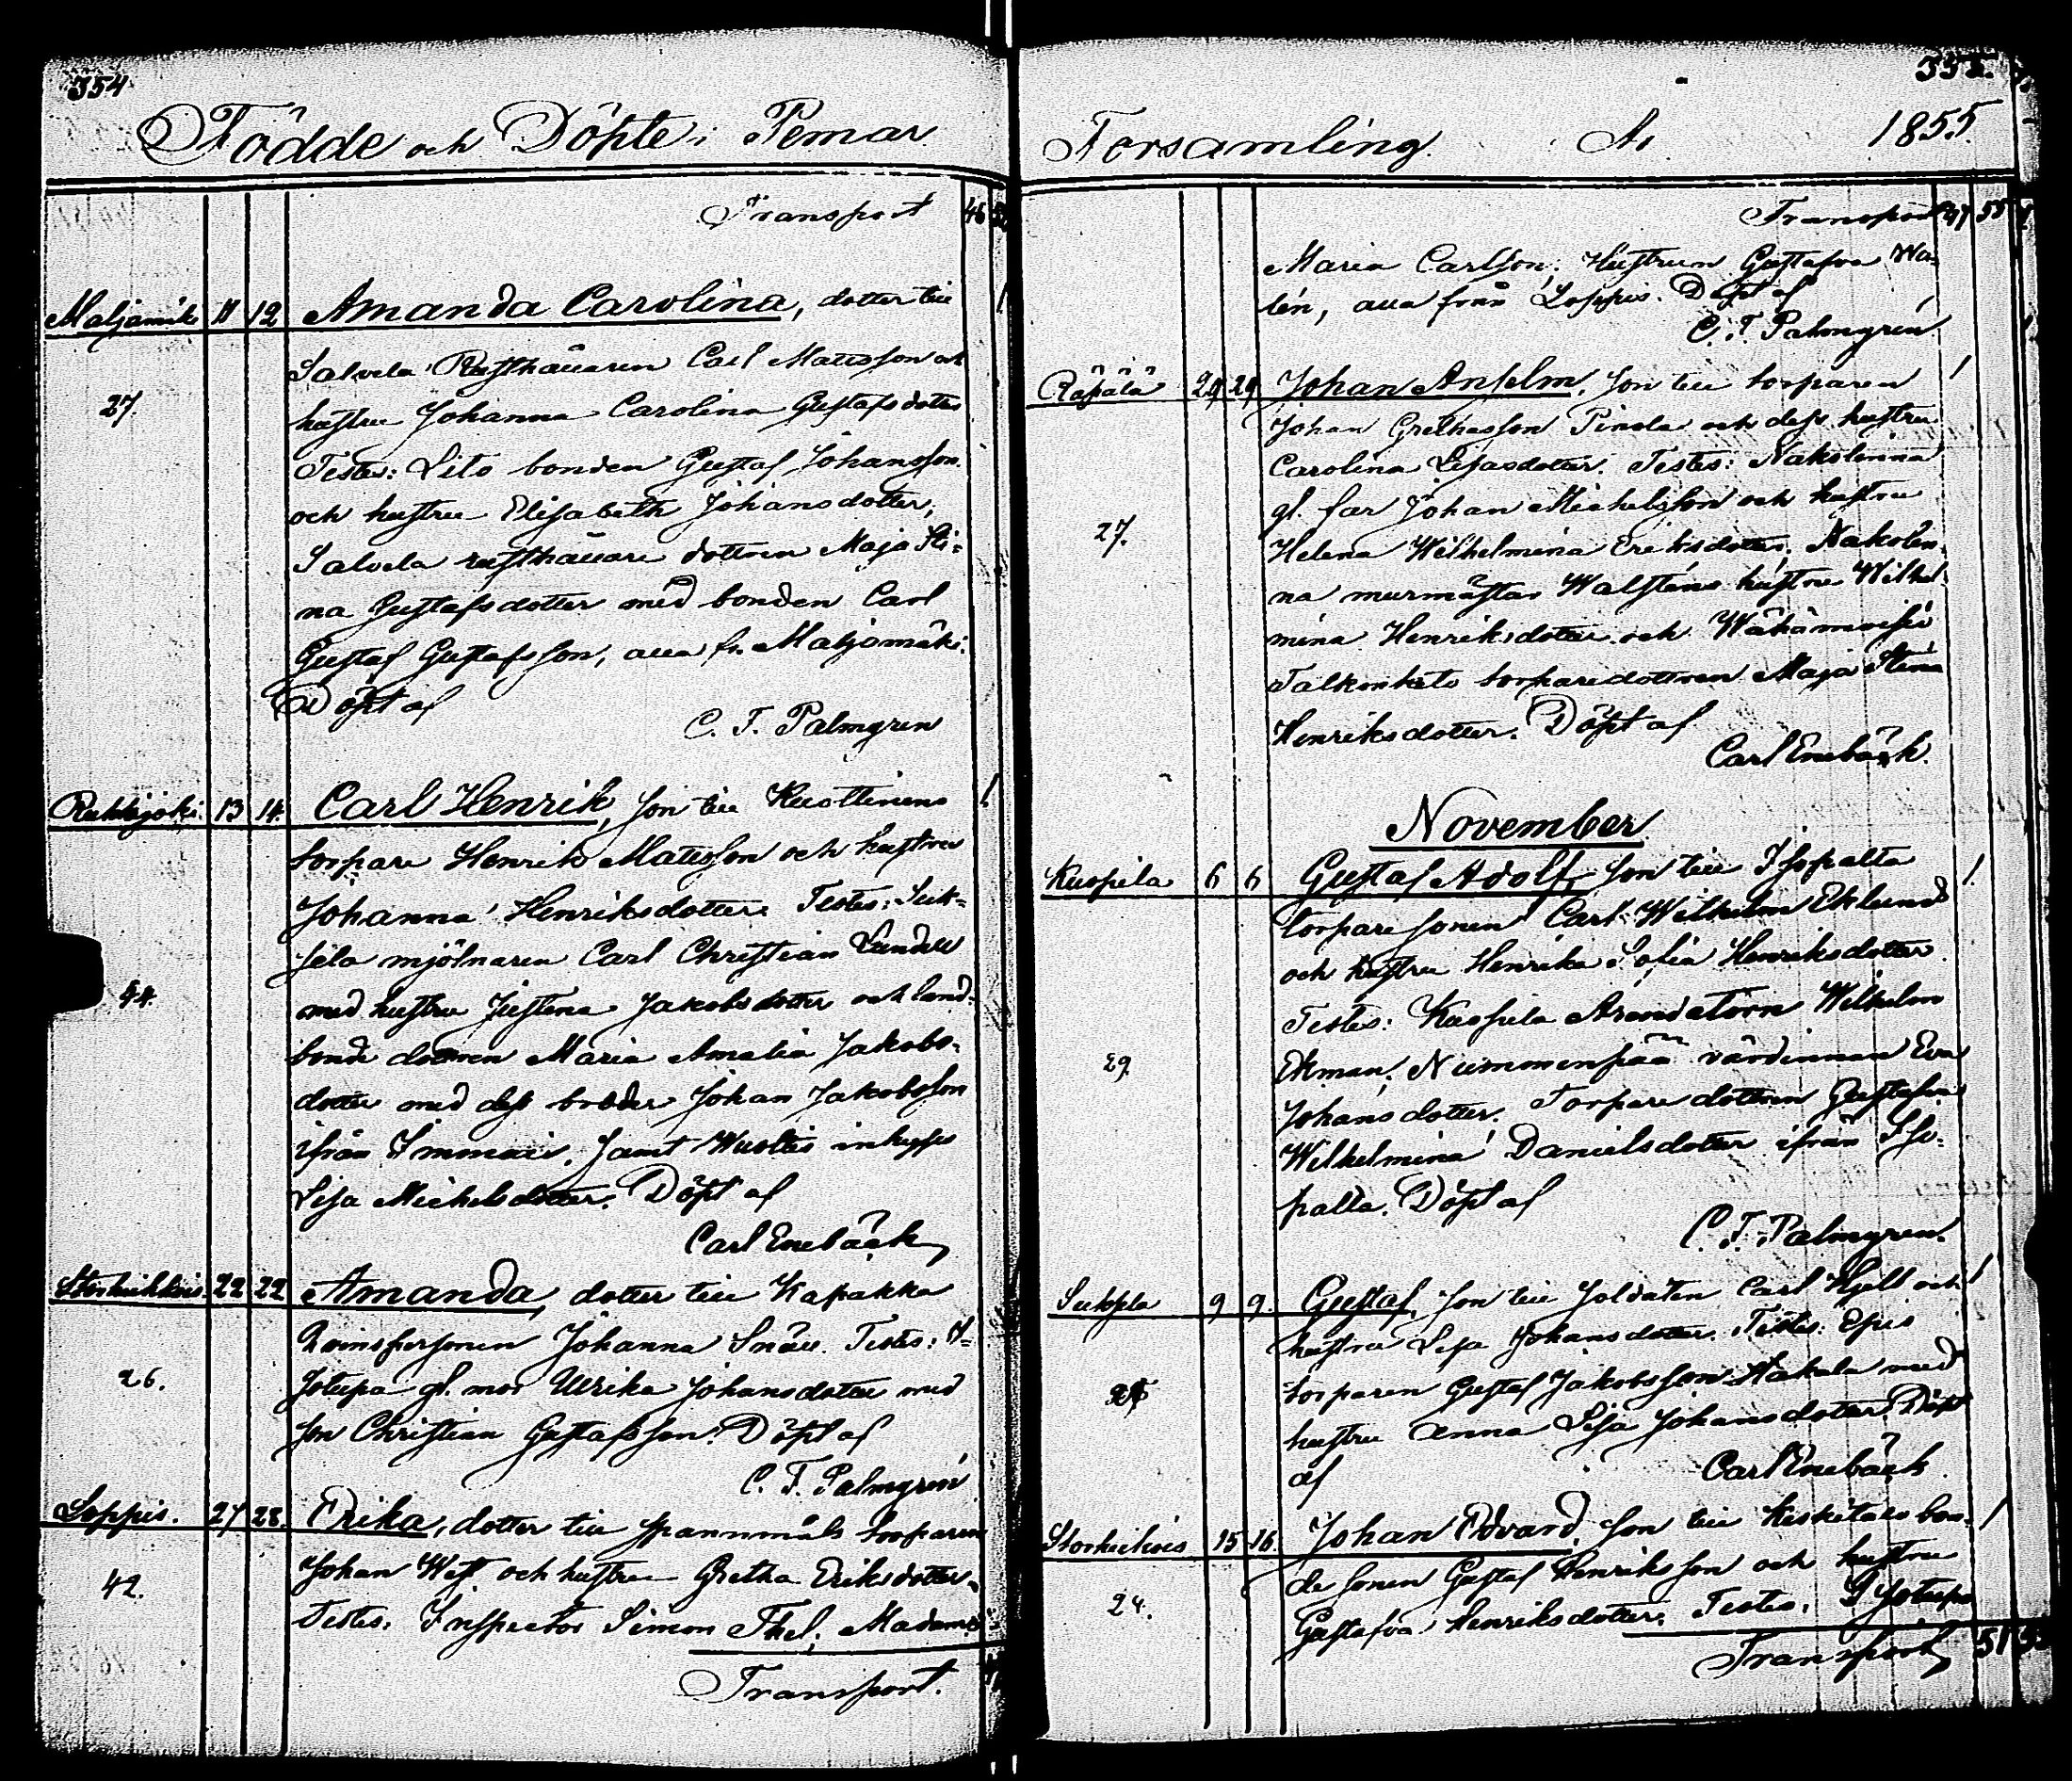 354
Födde och Döpte i Pemar
Transport 46
Maljamäki 11 12 Amanda Carolina, dotter till
Salvela Rusthållaren Carl Matsson och
27. hustru Johanna Carolina Gustafsdotter
Testes: Lito bonden Gustaf Johansson
och hustru Elisabeth Johansdotter,
Salvela rusthållare dottren Maja Sti-
na Gustafsdotter med bonden Carl
Gustaf Gustafsson, alla fr. Maljamäki.
Döpt af
C. F. Palmgren
13 14. Carl Henrik, son till
torpare Henrik Matsson och hustru
Johanna Henriksdotter. Testes: Suk-
sela mjölnaren Carl Christian Lundell
44. med hustru Justina Jakobsdotter och land-
bonde dottren Maria Amalia Jakobs-
dotter med dess broder Johan Jakobsson
ifrån samt inhyses
Lisa Michelsdotter. Döpt af
Carl Enebäck
22 22 Amanda, dotter till Kapakka
qvinspersonen Johanna Snäll. Testes: I-
26. sotupa gl. mor Ulrika Johansdotter med
son Christian Gustafsson. Döpt af
C. F. Palmgren
Loppis. 27 28. Erika, dotter till Spannmåls torparen
42. Johan West och hustru Gretha Eriksdotter.
Testes: Inspector Simon Thel, Madame
Transport.
355.
Församling. År 1855.
Transport 47 55
Maria Carlson. Hustrun Gustafva Wa-
lén, alla från Loppis. Döpt af
C. F. Palmgren
Räpälä 29 29 Johan Anselm, son till torparen
Johan Grelsson Pinola och dess hustru
Carolina Lisasdotter. Testes: Nakolinna
gl. far Johan Michelsson och hustru
27. Helena Wilhelmina Eriksdotter, Nakolin-
na murmästar Walsténs hustru Wilhel-
mina Henriksdotter och
torparedottren Maja Stina
Henriksdotter. Döpt af
Carl Enebäck.
November
Kuopila 6 6 Gustaf Adolf, son till Isopalta
torpare sonen Carl Wilhelm Eklund
och hustru Henrika Sofia Henriksdotter.
Testes: Kuopila Arendatorn Wilhelm
29. Ekman, Nummenpää värdinnan Eva
Johansdotter. Torpare dottren Gustafva
Wilhelmina Danielsdotter ifrån Iso-
palta. Döpt af
C. F. Palmgren.
9 9. Gustaf, son till soldaten Carl Hjelt och
hustru Lisa Johansdotter. Testes:
torparen Gustaf Jakobsson Hakala med
hustru Anna Lisa Johansdotter. Döpt
af Carl Enebäck.
15 16. Johan Edvard, son till Keskitalo bon-
de sonen Gustaf Henriksson och hustru
24. Gustafva Henriksdotter. Testes: Isotupa
Transport 51